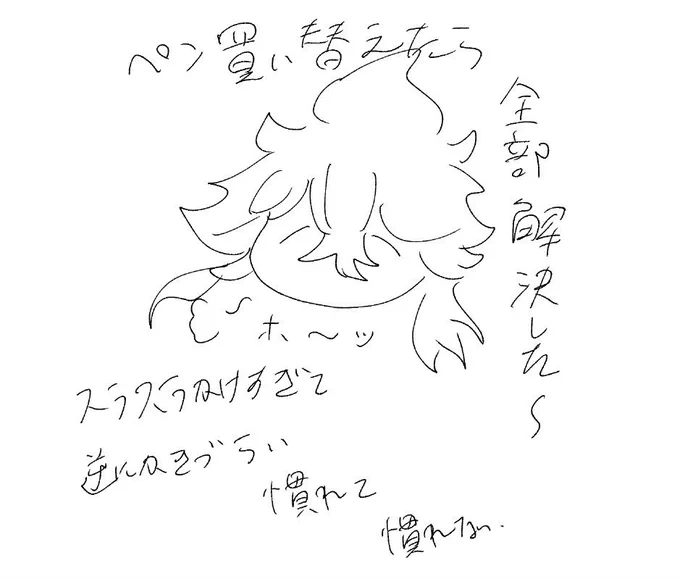 ペン買い替えたら
全部解決した〜
ホ〜ッ
スラスラかけすぎて
逆にかきづらい
慣れて
慣れない.